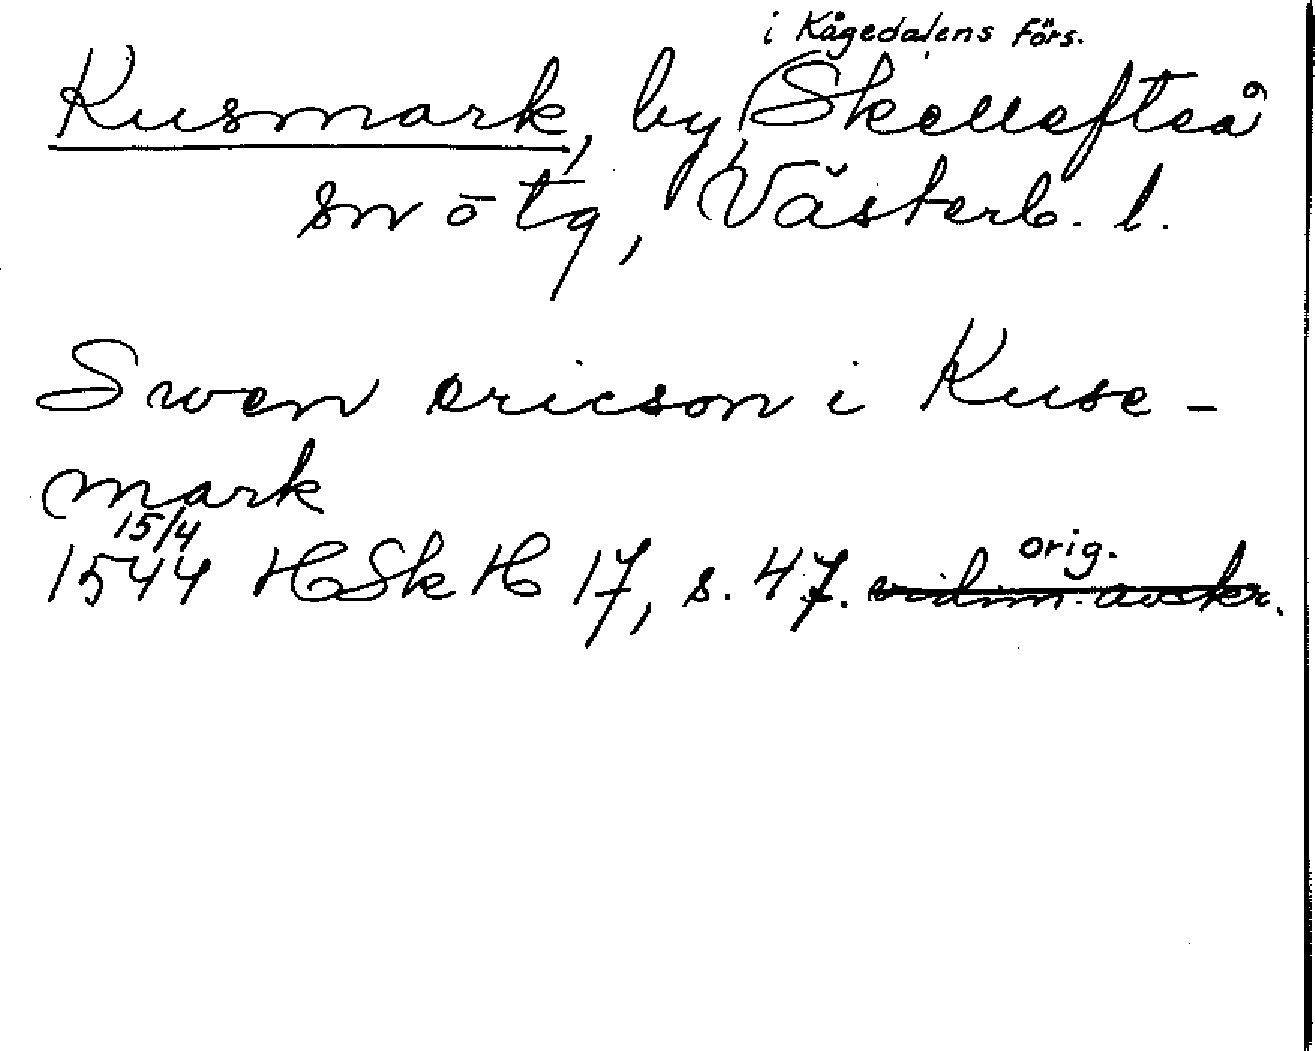 i Kågedalens förs.
Kusmark, by, Skellefteå
sn o tg, Västerb. l.
Swen ericson i Kuse-
mark
15/4
1544 HSkH 17, s. 47. vidim. avskr.
orig.